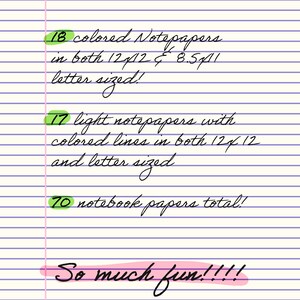 18 colored Notepapers
in both 12x12 & 8.5x11
letter sized!
17 light notepapers with
colored lines in both 12x12
and letter sized
70 notebook papers total!
So much fun!!!!